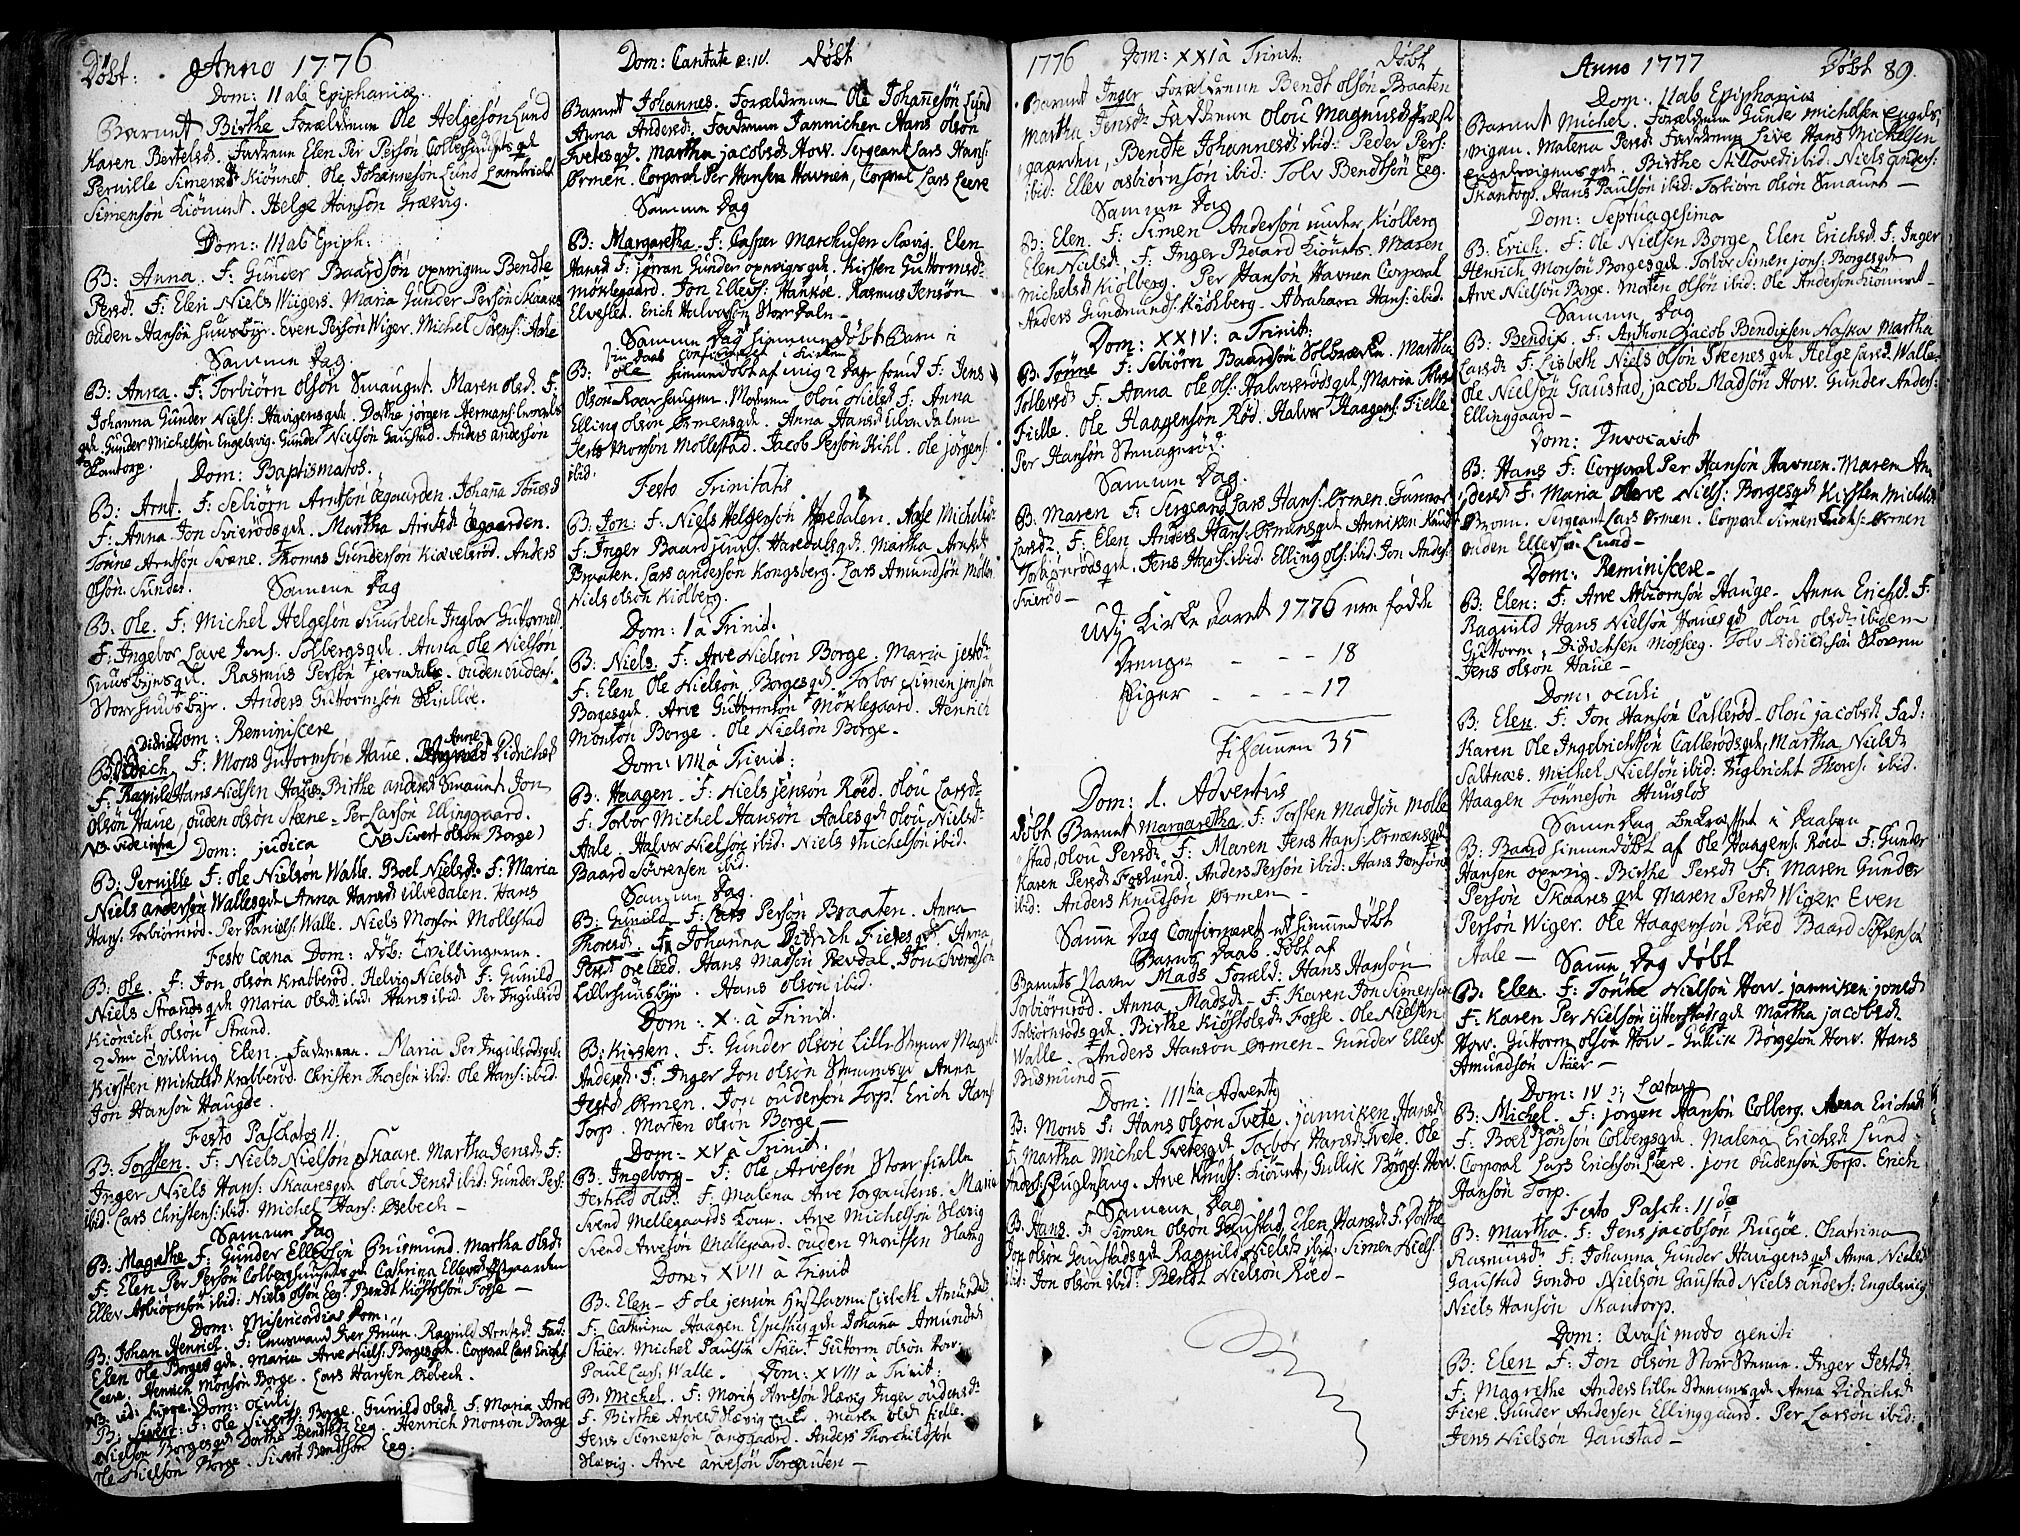 Döbt: Anno 1776
Dom: II ab Epiphaniæ.
Barnet Birthe Forældrene Ole Helgesön Lund
Karen Bertelsd. Fadrene Elen Per Persön
Pernille Simens Kiönnet. Ole Johannesön Lund
Simensön Kiönnet. Helge Hansön Græsvig.
Dom: III ab Epiph:
B: Anna. F: Gunder Baardsön opnvigen Bendte
Persd. F: Elen Niels Wiigers. Maria Gunder Persön Skaares
ouden Hansön Huusbÿe. Even Persön Wiger. Michel Sörens: Aale
Samme Dag.
B: Anna. F: Torbiörn olsön Smauget. Maren olsd. F:
Johanna Gunder Niels: Havigensqd. Dorthe jörgen Hermans:
qd. Gunder Michelsön Engelsvig. Gunder Nielsön Gaustad. Anders andersön
Skantorp. Dom: Baptismatos.
B: Arnt. F: Sebiörn Arntsön ögaarden. Johanna Tönnesd
F: Anna Jon Svierödsqd. Martha Arntsd ögaarden.
Tönne Arntsön Svene. Thomas Gundersön Kiævelsröd. Anders
olsön Sundet. Samme Dag
B: Ole. F: Michel Helgesön Kuurbech Ingbor Guttormsd
F: Ingebor Lave Jens. Solbergsqd. Anna Ole Nielsön
Huusbÿnsqd. Rasmus Persön jerndale. ouden ouders:
Storrhuusbÿe. Anders Guttormsön Skillie.
Dom: Reminiscere
B: Didrich F: Mons Guttormsön Haue. Anne Didrichsd
F: Ragnild Hans Nielsen Haue. Birthe andersd Smauet Jon
olsön Haue, ouden olsön Skene - Per Larsön Ellinggaard.
NB vide infra Dom: judica (NB Sivert olsön Borge)
B: Pernille F: Ole Nielsön Walle. Boel Nielsd. F: Maria
Niels andersön Wallesqd Anna Hansd Ulvedalen. Hans
Hans: Torbiörnröd. Per Daniels: Walle. Niels Monsön Mollestad
Festo Cæna Dom: döb: Tvillingerne.
B: Ole. F: Jon olsön Krabberöd. Helvig Nielsd F: Gunild
Niels Strandsqd Maria olsd ibid: Hans ibid. Per Ingulsröd
Kiönich olsön Strand.
2den Tvilling Elen. Fadrene. Maria Per Ingulsrödsqd:
Kirsten Michelsd Krabberöd. Christen Thoresön ibid: Ole Hans: ibid.
Jon Hansön Haugee.
Festo Paschatos II.
B: Torsten. F: Niels Nielsön Skaare. Martha Jensd. F:
Inger Niels Hans: Skaaresqd olou Jensd ibid: Gunder Pers:
ibid: Lars Christens: ibid: Michel Hans: Ödebech -
Samme Dag
B: Magrethe F: Gunder Ellevsön Buismund. Martha olsd
F: Elen Per Persön Cathrina Ellevsd Östgaarden
Ellev Asbiörnsön ibid: Niels olsön Eeg. Bendt Kiöstolsön Fosse -
Dom: Misericordias Dom:
B: Johan Henrich. F: Iver Amün. Ragnild Arntsd. Fad:
Elen Ole Borgesqd. Maria Arve Niels: Borgesqd. Corporal Lars Erichs
Leere. Henrich Monsön Borge. Lars Hansen Ödebech.
NB vid: supra: Dom: oculi
B: Sivert: F: Ole Siverts: Borge. Gunild olsd. F: Maria Arve
Nielsön Borgesqd Dorthe Bendtsd: Eeg. Henrich Monsön Borge
Ole Nielsön Borge. Sivert Bendtsön Eeg:
Dom: Cantate Döbt
Barnet Johannes. Forældrene Ole Johannesön Lund
Anna Andersd: Fadrene Jannichen Hans olsön
Tvetesqd. Martha jacobsd How. Sergeant Lars Hans:
Örmen. Corporal Per Hansen Havnen, Corporal Lars Leere
Samme Dag
B: Margaretha. F: Casper Marchusen Slævig. Elen
Hansd F: jörran Gunder opnvigs qd. Kirsten Guttormsd:
Möklegaard. Jon Ellevs: Hankoe. Rasmus Jensön
Elveslet. Erich Halvorsön Storrdaln -
Samme Dag hiemme döbt Barn i
sin daab confirmeret i Kirken
B: ole hiemmedöbt af mig 2 dage forud F: Jens
Olsön Roer haugen. Moren Olou Nielsd F: Anna
Elling olsön Örmensqd. Anna Hansd Ulvedalen
Jens Monsön Mollestad. Jacob Persön Kihl. Ole jörgens:
ibid.
Festo Trinitatis
B: Jon: F: Niels Helgesön Haredalen. Aale Michelsd:
F: Inger Baard jens: Haredalsqd. Martha Arntsd
Braaten. Lars andersön Kongsberg. Lars Amundsön Möller
Niels olsön Kiölberg.
Dom: I à Trinit.
B: Niels. F: Arve Nielsön Borge. Maria jestd:
F: Elen Ole Nielsön Borgesqd. Torbor Simen jonsön
Borgesqd. Arve Guttormsön Möklegaard. Henrich
Monsön Borge. Ole Nielsön Borge -
Dom: VIII à Trinit:
B: Haagen. F: Niels jensön Röed. Olou Larsd:
F: Torbor Michel Hansön Aalesqd Olou Nielsd:
Aale. Halvor Nielsön ibid: Niels Michelsön ibid.
Baard Sövrensen ibid.
Samme Dag.
B: Gunild. F: Lars Persön Braaten. Anna
Thoresd. F: Johanna Didrich Fieresqd. Anna
Persd öreleed. Hans Madsön Rævdal. Jon Svensön
Lillehuusbÿe. Hans olsön ibid.
Dom: X: à Trinit.
B: Kirsten. F: Gunder olsön Lille Stenne Magret
Andersd. F: Inger Jon olsön Stennesqd Anna
Jestd Örmen. Jon oudensön Torp. Erich Hans
Torp. Morten olsön Borge -
Dom: XV à Trinit:
B: Ingeborg. F: Ole Arvesön Storr fielle
Jertrud olsd. F: Malena Arve Torgautens. Maria
Svend Mellegaards Kone. Arve Michelsön Slævig
Svend Arvesön Mellegaard. ouden Moritsen Slævig
Dom: XVII à Trinit
B: Elen - F ole jensön Lisbeth Amunds:
F: Cathrina Haagen Johana Amundsd
Stäer. Michel Paulsön Stäer. Guttorm olsön How.
Paul Lars: Walle. Dom: XVIII à Trinit:
B: Michel. F: Morits Arvesön Slævig Inger oudensd:
F: Birthe Arvesd Slævig. Maren olsd fielle.
Jens Simensön Langgaard. Anders Thorchildsön
Slævig. Arve arvesön Torgauten -
1776 Dom: XXI à Trinit: Döbt
Barnet Inger Forældrene Bendt olsön Braaten
Martha Jensd: Fadrene olou Magnusd Præst
gaarden, Bendte Johannesd: ibid: Peder Pers:
ibid: Ellev asbiörnsön ibid: Tolv Bendtsön Eeg.
Samme Dag
B: Elen. F: Simen Andersön under Kiölberg
Elen Nielsd: F: Inger Beeard Kiönets. Maren
Michelsd Kiölberg. Per Hansön Havnen Corporal
Anders Gundmunds: Kiölberg. Abraham Hans: ibid.
Dom: XXIV: a Trinit:
B: Tönne F: Sebiörn Baardsön Solbrække. Martha
Tollevsd F: Anna Ole ols: Halvorsrödsqd, Maria Tolve
Fielle. Ole Haagensön Röd. Halvor Haagens: Fielle
Per Hansön Stenageröd:
Samme Dag
B: Maren F: Sergeant Lars Hans: Örmen. Gunnor
Larsd: F: Elen Anders Hans: Örmensqd. Anniken Knud
Torbiörnrödsqd. Jens Hans: ibid. Elling ols: ibid. Jon Anders:
Svieröd -
Udj Kirke Aaret 1776 ere födde
Drenge - - - 18
Piger - - - - 17
Tilsammen 35
Dom: I. Adventus
Döbt Barnet Margaretha. F: Torsten Madsön Molle
stad, olou Persd. F: Maren Jens Hans: Örmensqd
Karen Persd Foslund. Anders Persön ibid: Hans Jonsön
ibid: Anders Knudsön Örmen -
Samme Dag Confirmeret et hiemmedöbt
Barns Daab. Döbt af
Barnets Navn Mads Foræld: Hans Hansön
Torbiörnröd. Anna Madsd - F: Karen Jon Simensen
Torbiörnrödsqd. Birthe Kiöstolsd Fosse. Ole Nielsen
Walle. Anders Hansön Örmen - Gunder Ellevs:
Bismund -
Dom: IIItia Adventq
B: Mons F: Hans olsön Tvete. janniken Hansd:
F. Martha Michel Tvetesqd. Torbor Hansd Tvete. Ole
Fuglesang. Arve Knuts: Kiönnet, Gullik Börges: How.
Samme Dag
B: Hans. F Simen olsön Gaustad, Elen Hansd: F. Dorthe
Jon olsön Gaustadsqd Ragnild Nielsd: ibid: Simen Niels:
ibid: Jon olsön ibid: Bendt Nielsön Röed -
Anno 1777 Döbt 89.
Dom: II ab Epiphania
Barnet Michel. Forældrene Gunder Michelsen Engels
vigen. Malena Persd Fadrene Live Hans Michelsen
Engelsvigensqd. Birthe ibid: Niels anders:
Skantorp. Hans Paulsön ibid: Torbiörn olsön Smauet -
Dom: Septuagesima
B: Erich. F: Ole Nielsen Borge Elen Erichsd: F: Inger
Henrich Monsön Borgesqd. Torbor Simen jons: Borgesqd
Arve Nielsön Borge. Morten olsön ibid: Ole Andersön Kiönnet -
Samme Dag
B: Bendix. F: Anthon Jacob Bendixsen Martha
Larsd: F Lisbeth Niels olsön Skenesqd. Helge Larsd. Walle.
Ole Nielsön Gaustad, jacob Madsön How. Gunder Anders:
Ellinggaard -
Dom: Invocavit
B: Hans F: Corporal Per Hansön Havnen. Maren An
dersd F: Maria Arve Niels: Borgesqd Kirsten Michelsd
Bronn. Sergeant Lars Örmen. Corporal Simen Örmen
ouden Ellevsön Lund -
Dom: Reminiscere -
B: Elen: F: Arve Asbiörnsön Hauge - Anna Erichsd. F:
Ragnild Hans Nielsön Hauesqd. Olou olsd: ibidem
Guttorm Didrichsen Mosseeg. Tolv Didrichsön
Jens olsön Haue -
Dom: oculi
B: Elen. F: Jon Hansön Calleröd - olou jacobsd. Fad:
Karen Ole Ingelrichtsön Callerödsqd, Martha Nielsd:
Saltnæs. Michel Nielsön ibid: Inglricht Thores: ibid.
Haagen Tönnesön Huuslös
Samme Dag Bekræftet i Daaben
B: Baard hiemmedöbt af Ole Haagens: Röed F: Gunder
Hansen opnvig. Birthe Persd: F: Maren Gunder
Persön Skaares qd Maren Persd Wiger Even
Persön Wiger. Ole Haagensön Röed Baard Sövrensen
Aale - Samme Dag döbt
B: Elen. F: Tönne Nielsön How. janniken jonsd:
F: Karen Per Nielsön Martha jacobsd:
How. Guttorm olsön How. Gullik Börgesön How. Hans
Amundsön Stäer -
Dom: IV Lætare
B: Michel. F: jörgen Hansön Colberg. Anna Erichsd
F: Boel Jonsön Colbergsqd. Malena Erichsd Lund
Corporal Lars Erichsön Leere. jon oudensön Torp. Erich
Hansön Torp.
Festo Pasch: II da
B: Martha. F: Jens jacobsön Rugöe. Chatrina
Rasmusd: F: Johanna Gunder Havigensqd Anna Nielsd
Gaustad Gondro Nielsön Gaustad Niels anders: Engelsvig
Niels Hansön Skantorp.
Dom: Qvasi modo geniti
B: Elen F: Jon olsön Storr Stenne. Inger Jestd:
F: Magrethe Anders lille Stennesqd Anna Didrichsd
Fiere. Gunder Andersen Ellinggaard. Per Larsön ibid:
Jens Nielsön Gaustad -